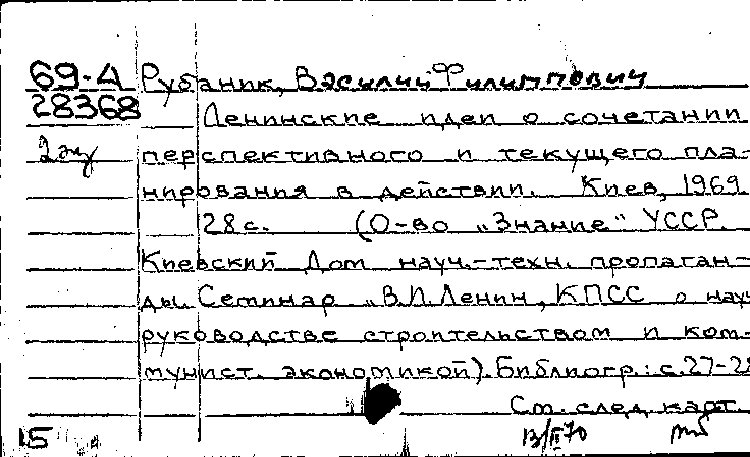 69-Д Рубаник, Василий Филиппович
28368 Ленинские идеи о сочетании
2 экз перспективного и текущего пла-
нирования в действии. Киев, 1969
28 с. (О-во „Знание" УССР.
Киевский Дом науч.-техн. пропаган-
ды. Семинар „В.И. Ленин, КПСС о науч
руководстве строительством и ком-
мунист. экономикой). Библиогр.: с. 27-28
См. след. карт.
15 13/II 70